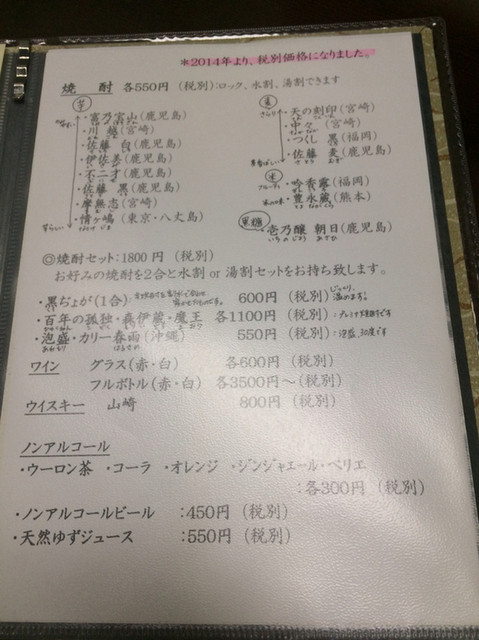 ＊2014年より、税別価格になりました。
焼 酎 各550円 (税別):ロック、水割、湯割できます
芋
・富乃宝山(鹿児島)
・川 越(宮崎)
・佐藤 白(鹿児島)
・伊佐美(鹿児島)
・不二才(鹿児島)
・佐藤 黒(鹿児島)
・摩無志(宮崎)
・情ヶ嶋(東京・八丈島)
麦
さらり
・天の刻印(宮崎)
・中々 (宮崎)
・つくし 黒(福岡)
・佐藤 麦(鹿児島)
米
・吟香露(福岡)
・豊永蔵(熊本)
黒糖
・壱乃醸 朝日(鹿児島)
いちのじょう あさひ
◎焼酎セット:1800 円 (税別)
お好みの焼酎を2合と水割 or 湯割セットをお持ち致します。
・黒ぢょか(1合) 600円 (税別)
・百年の孤独・森伊蔵・魔王 各1100円 (税別):プレミア焼酎です
・泡盛・カリー春雨(沖縄) 550円 (税別):泡盛、30度です
あわもり はるさめ
ワイン グラス(赤・白) 各600円 (税別)
フルボトル(赤・白) 各3500円～(税別)
ウイスキー 山崎 800円 (税別)
ノンアルコール
・ウーロン茶 ・コーラ ・オレンジ ・ジンジャエール・ペリエ
:各300円 (税別)
・ノンアルコールビール :450円 (税別)
・天然ゆずジュース :550円 (税別)